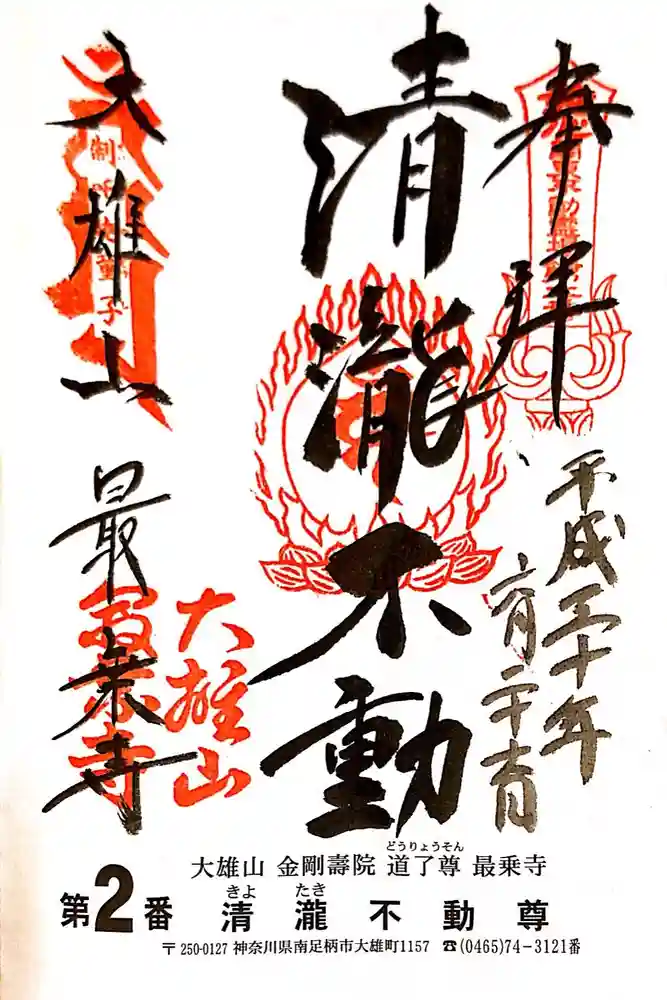 奉拜
平成三十年
清瀧不動
大雄山
最乗寺
大雄山
最乗寺
大雄山 金剛壽院 道了尊 最乗寺
どうりょうそん
第2番 清瀧不動尊
きよ たき
〒250-0127 神奈川県南足柄市大雄町1157 ☎(0465)74-3121番